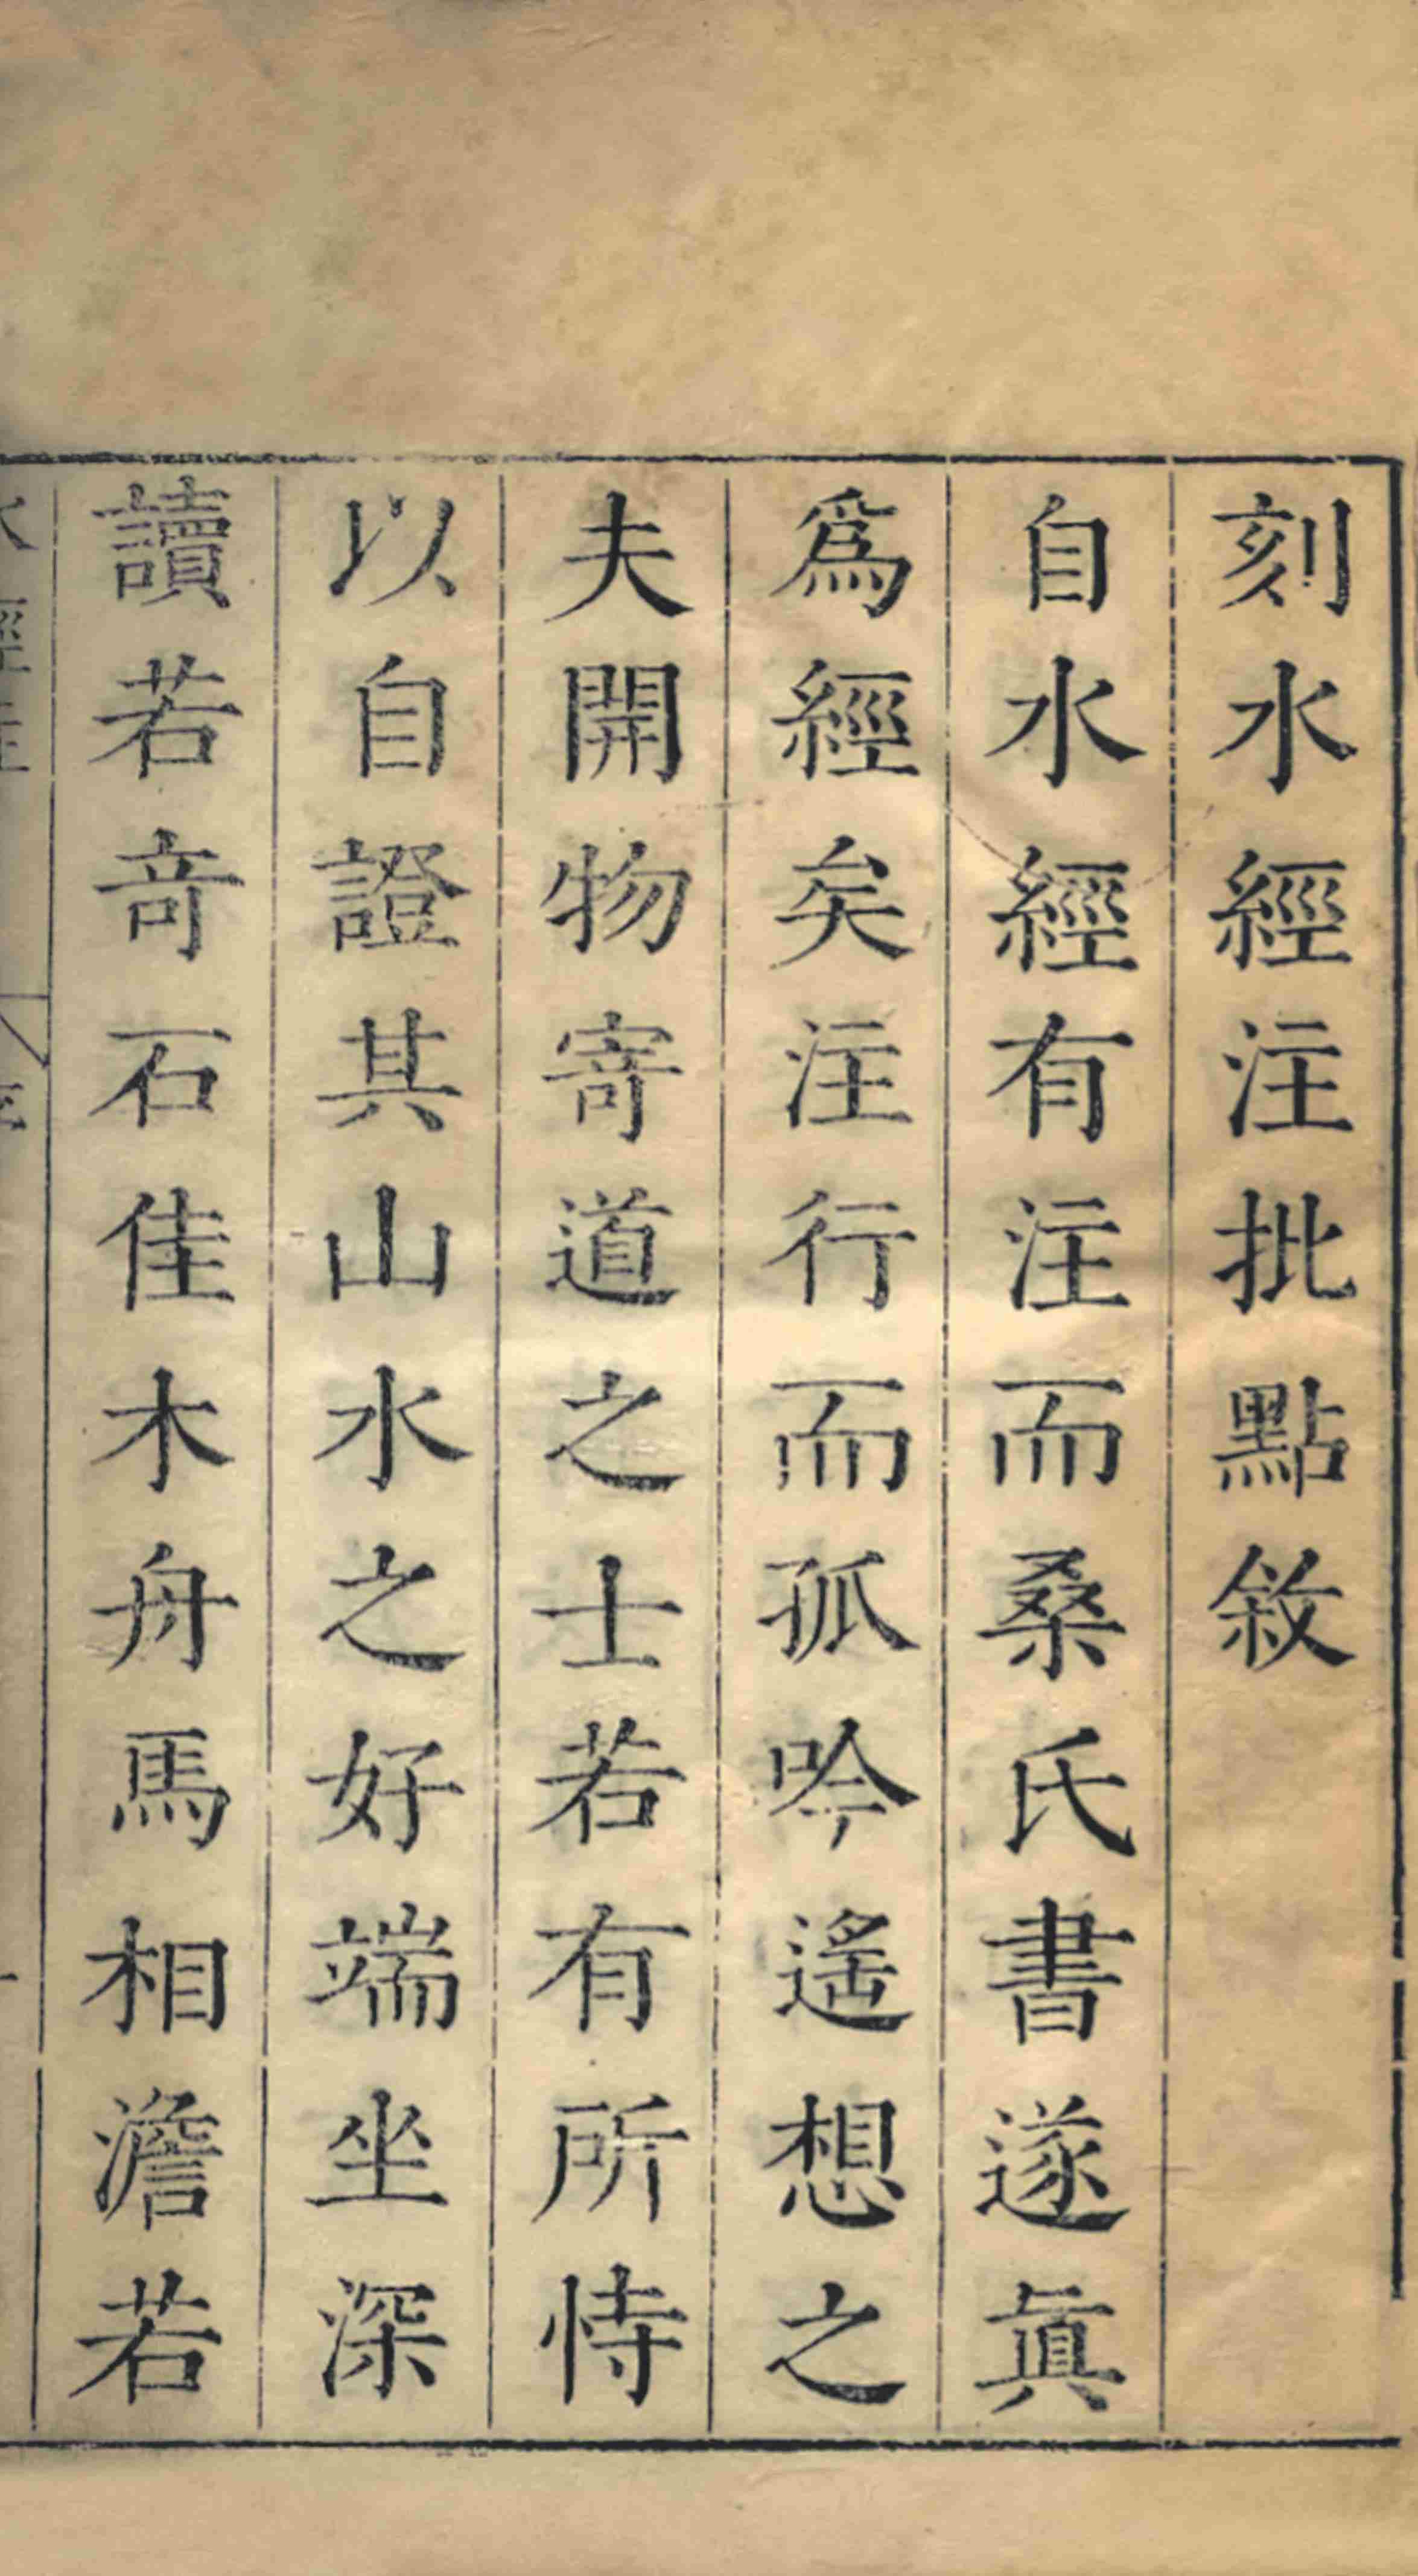 刻水經注批點敘
自水經有注而桑氏書遂眞
爲經矣注行而孤吟遙想之
夫開物寄道之士若有所恃
以自證其山水之好端坐深
讀若竒石佳木舟馬相澹若